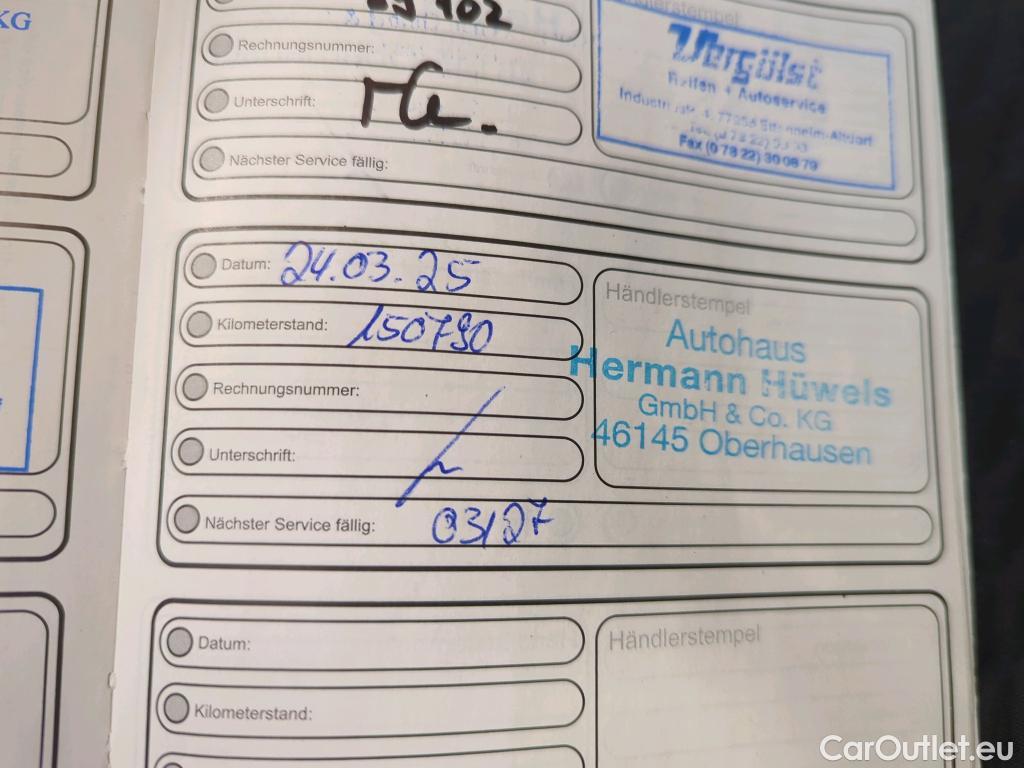 KG
Rechnungsnummer:
Unterschrift:
Nächster Service fällig:
Händlerstempel
Vergölst
Reifen + Autoservice
Fax (0 78 22) 30 08 79
Datum: 24.03.25
Kilometerstand: 150790
Rechnungsnummer:
Unterschrift:
Nächster Service fällig: 03/27
Händlerstempel
Autohaus
Hermann Hüwels
GmbH & Co. KG
46145 Oberhausen
Datum:
Kilometerstand:
Händlerstempel
CarOutlet.eu